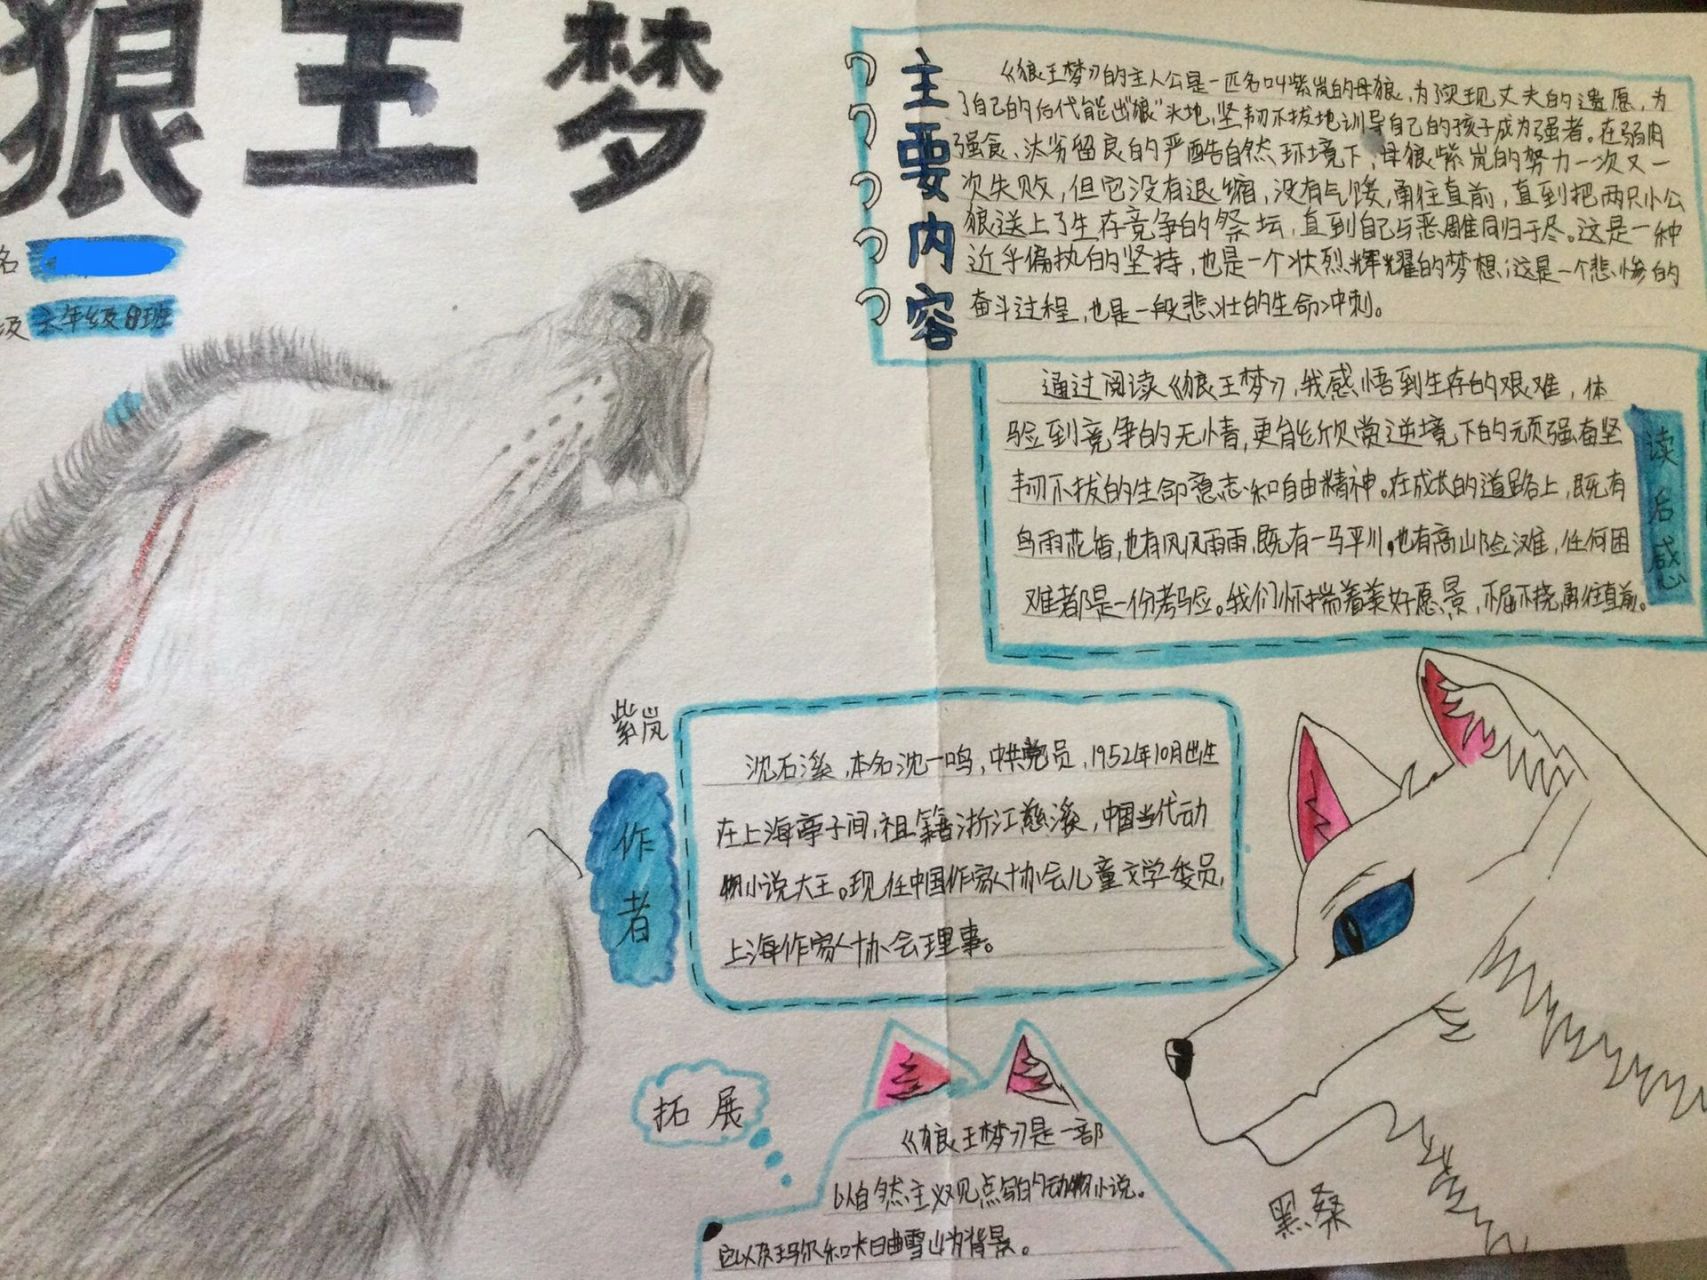 狼王梦
名
级 六年级8班
主要内容
《狼王梦》的主人公是一匹名叫紫岚的母狼,为了实现丈夫的遗愿,为
了自己的后代能出“狼”头地,坚韧不拔地训导自己的孩子成为强者。在弱肉
强食、汰劣留良的严酷自然环境下,母狼紫岚的努力一次又一
次失败,但它没有退缩,没有气馁,勇往直前,直到把两只小公
狼送上了生存竞争的祭坛,直到自己与恶雕同归于尽。这是一种
近乎偏执的坚持,也是一个壮烈辉耀的梦想;这是一个悲惨的
奋斗过程,也是一段悲壮的生命冲刺。
通过阅读《狼王梦》,我感悟到生存的艰难,体
验到竞争的无情,更能欣赏逆境下的顽强奋坚
韧不拔的生命意志和自由精神。在成长的道路上,既有
鸟雨花香,也有风风雨雨,既有一马平川,也有高山险滩,任何困
难都是一份考验。我们怀揣着美好愿景,不屈不挠勇往直前。
读后感
紫岚
作者
沈石溪,本名沈一鸣,中共党员,1952年10月出生
在上海亭子间,祖籍浙江慈溪,中国当代动
物小说大王。现任中国作家协会儿童文学委员,
上海作家协会理事。
拓展
《狼王梦》是一部
以自然主义观点写的动物小说。
它以尕玛尔和卡日曲雪山为背景。
黑桑